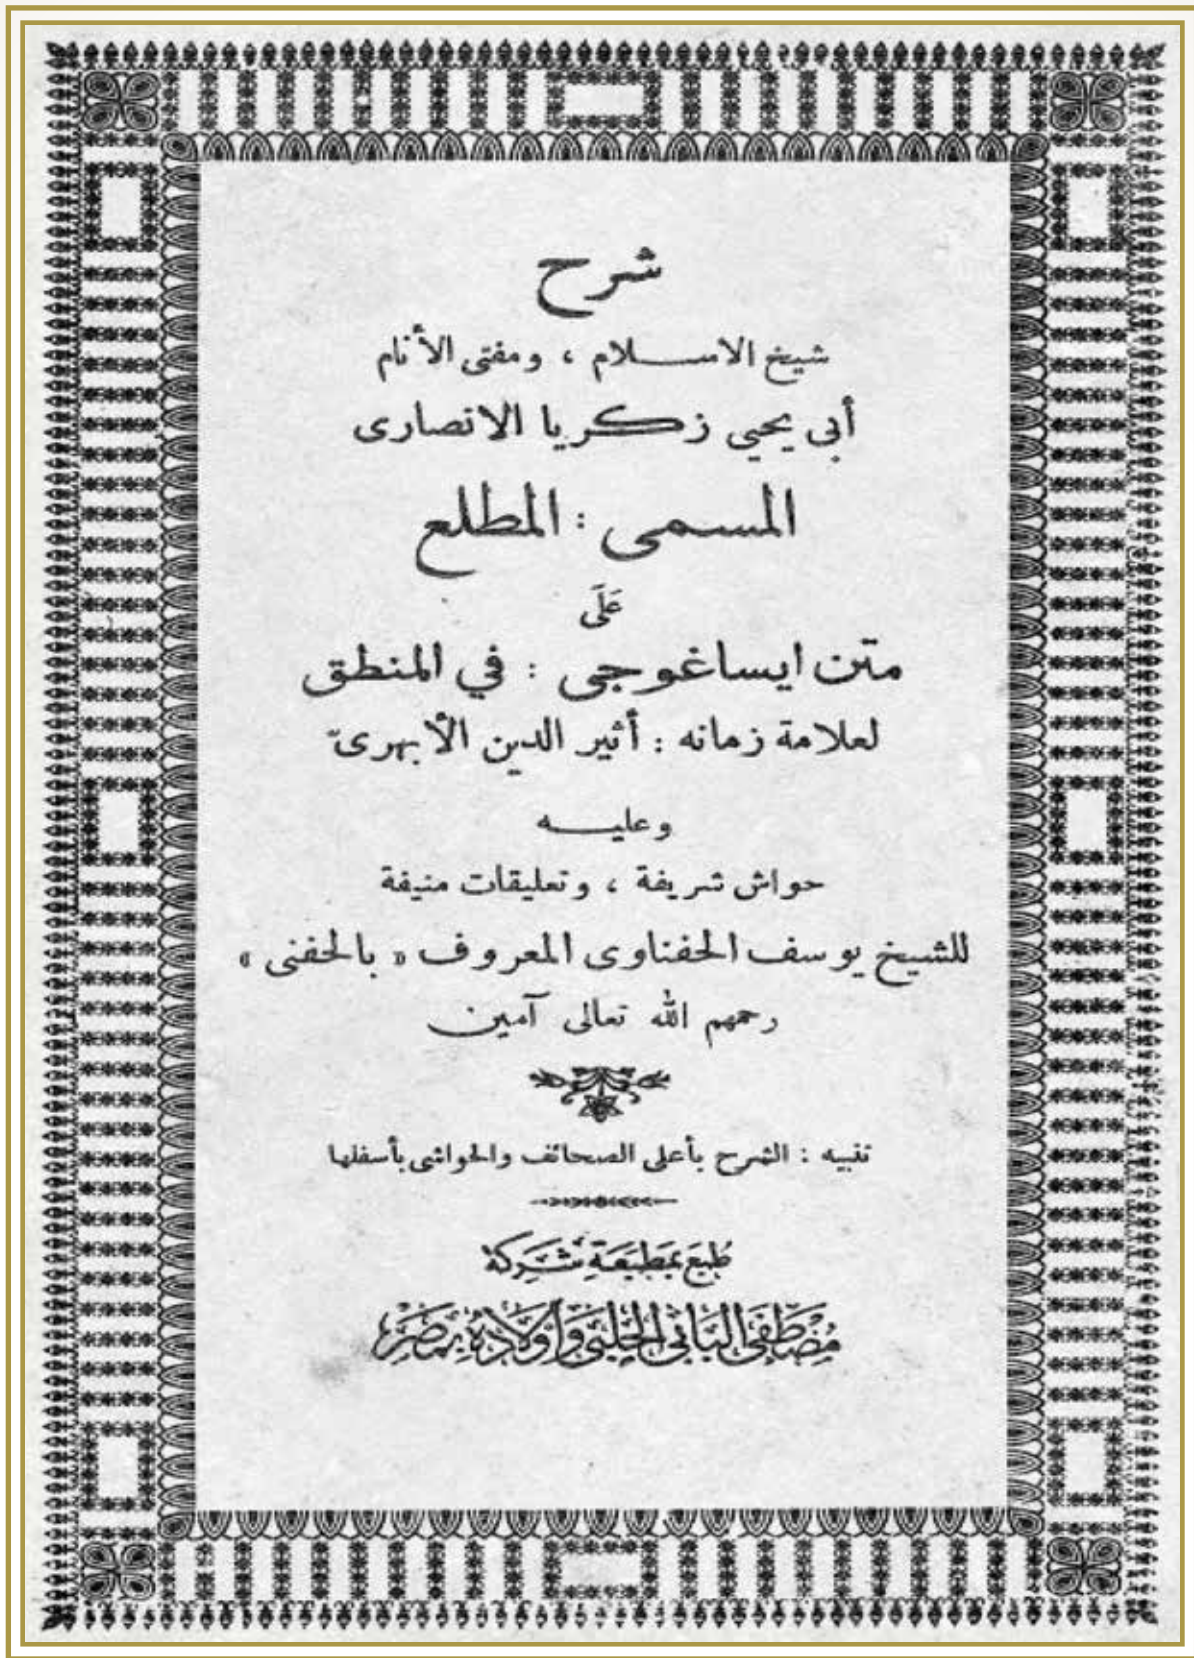 شرح
شيخ الاســـلام ، ومفتى الأنام
أبى يحيي زكريا الانصارى
المسمى : المطلع
عَلَى
متن ايساغوجى : في المنطق
لعلامة زمانه : أثير الدين الأبهرىّ
وعليـــه
حواش شريفة ، وتعليقات منيفة
للشيخ يوسف الحفناوى المعروف « بالحفنى »
رحمهم الله تعالى آمين
تنبيه : الشرح بأعلى الصحائف والحواشى بأسفلها
طُبِعَ بِمَطْبَعَةِ شَرِكَة
مُصْطَفَى البَابِى الحَلَبِى وَأَوْلَادُهُ بِمِصْر